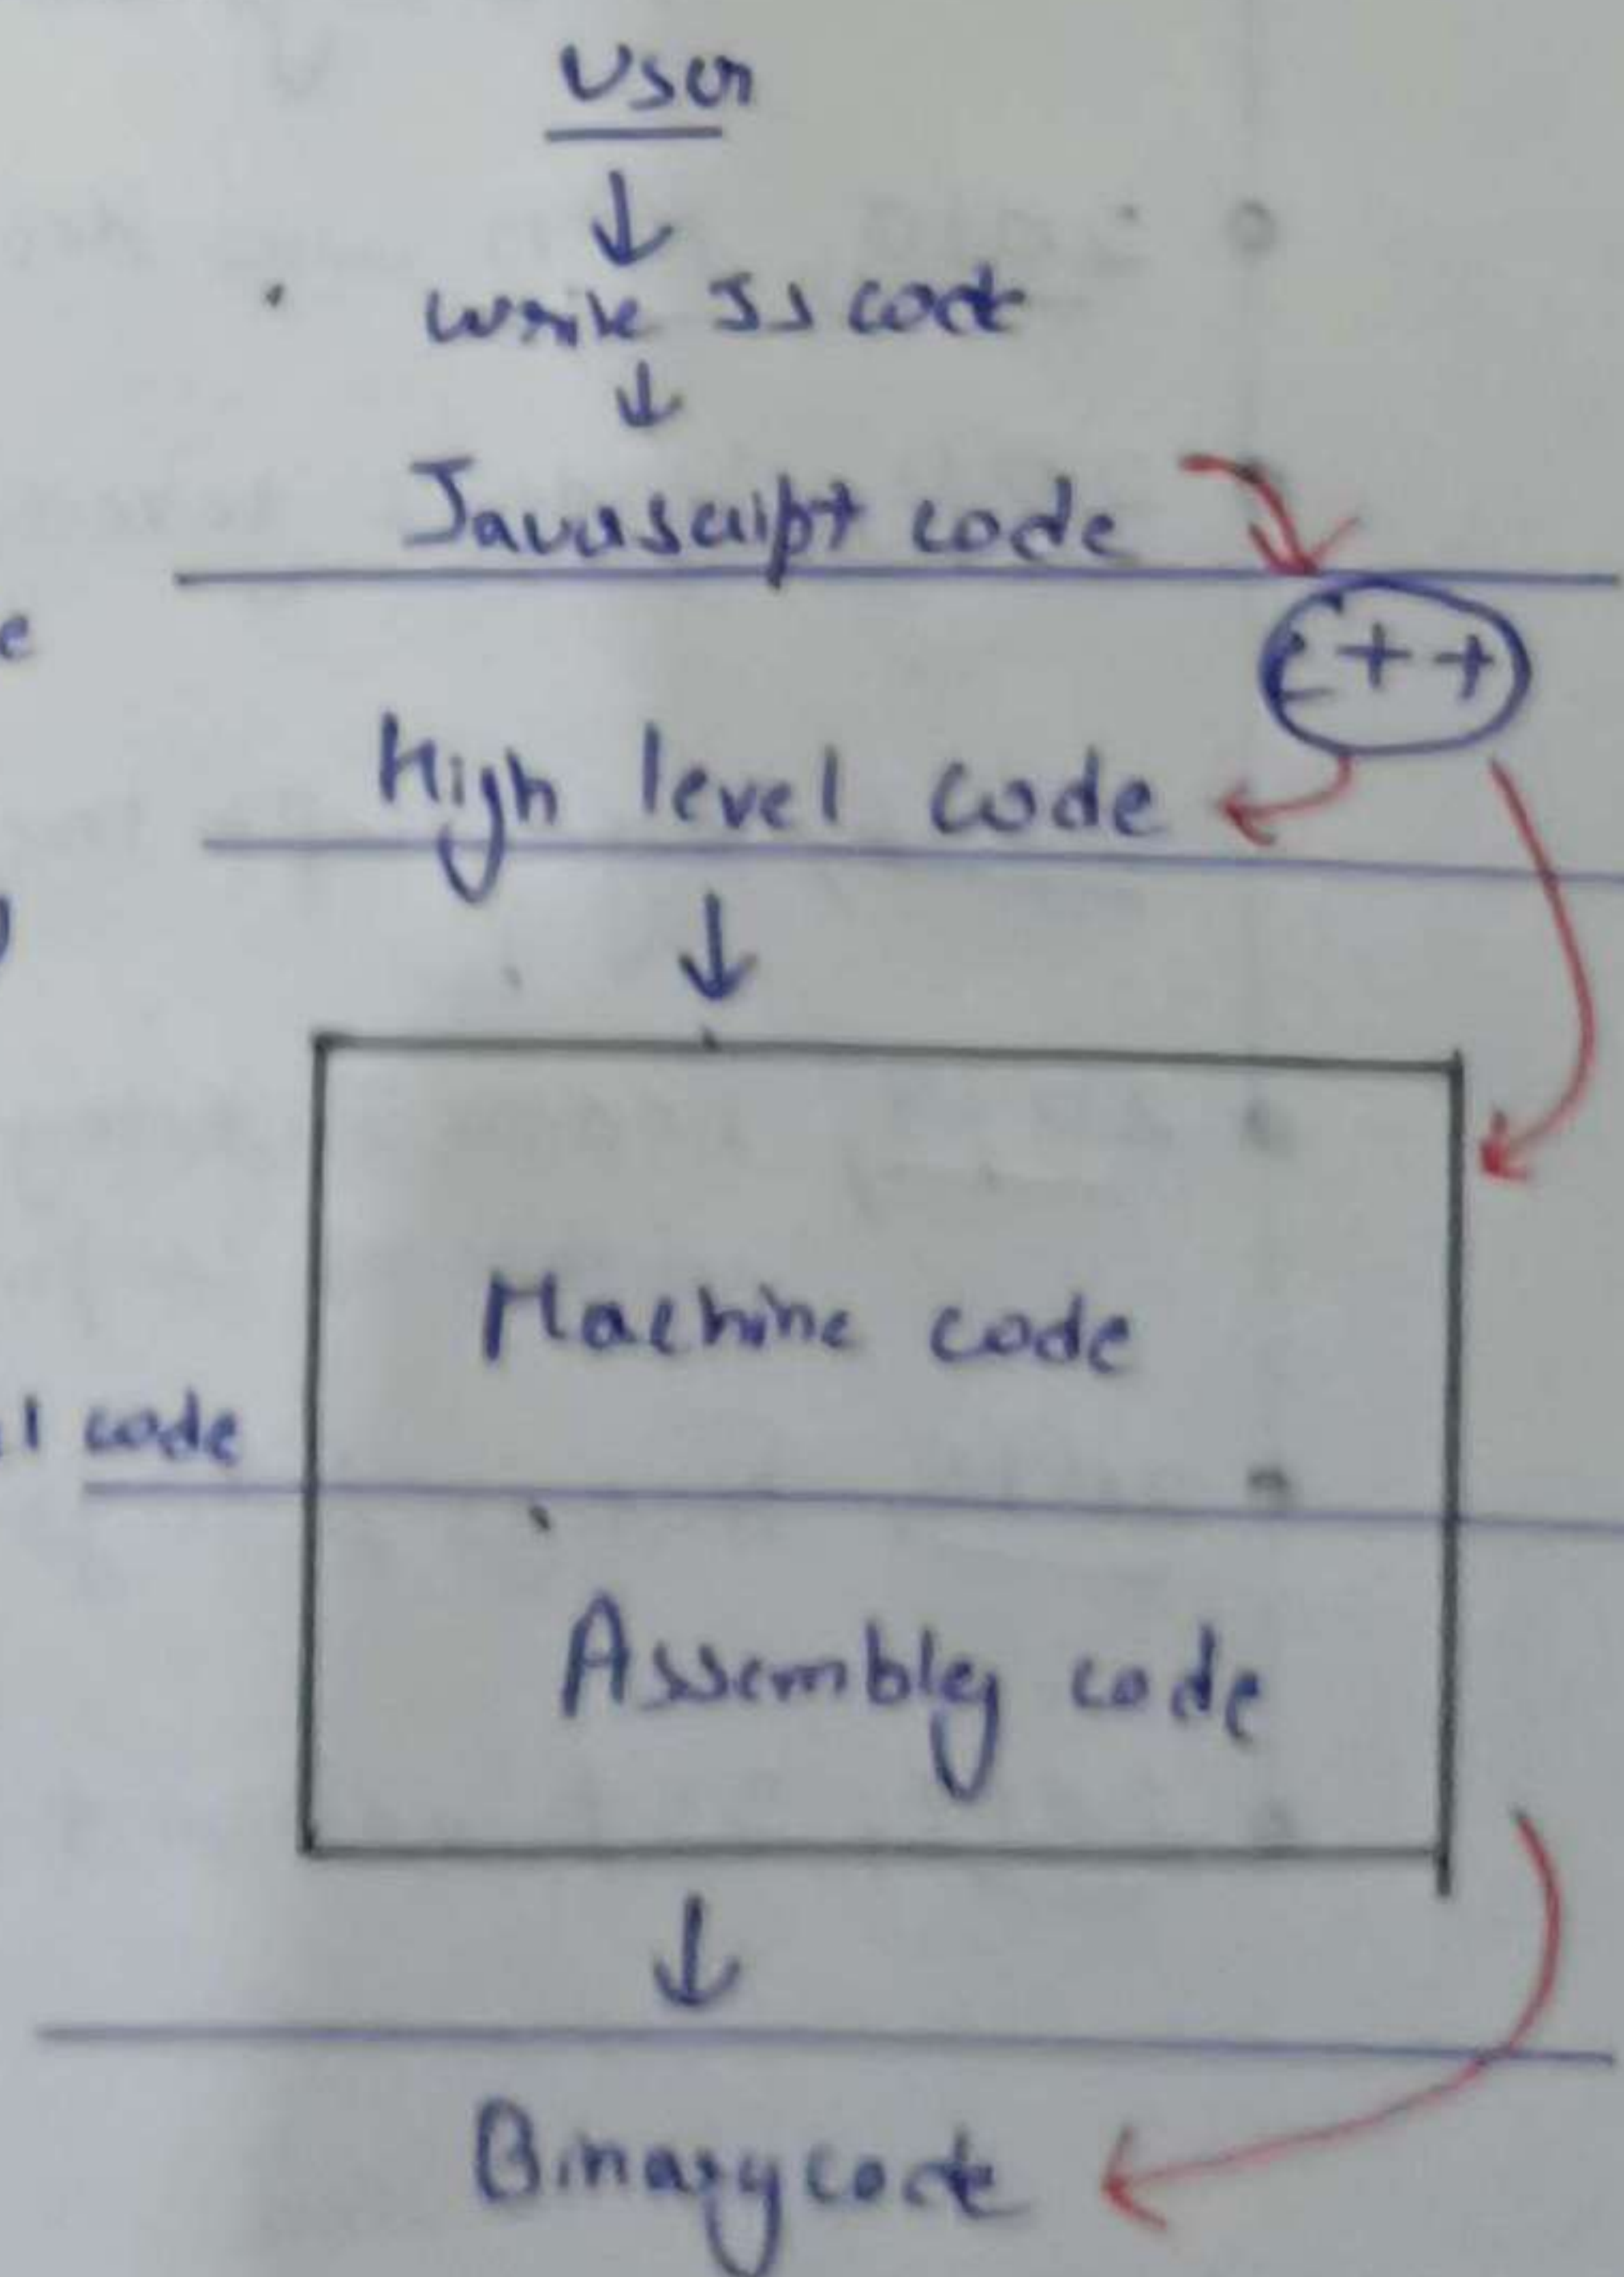 User
↓
write JS code
↓
Javascript code
C++
High level code
↓
Machine code
code
Assembley code
↓
Binary code